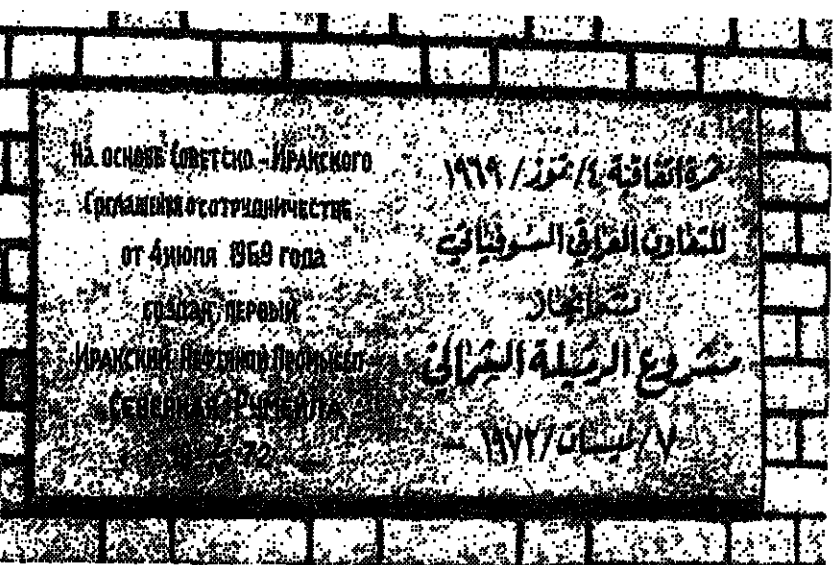 На основе Советско-Иракского
Соглашения о сотрудничестве
от 4 июля 1969 года
создан первый
Иракский Нефтяной Промысел
Северная Румейла
72
ثمرة اتفاقية ٤/ تموز / ١٩٦٩
للتعاون العراقي السوفياتي
تم انجاز
مشروع الرميلة الشمالي
٧/ نيسان / ١٩٧٢